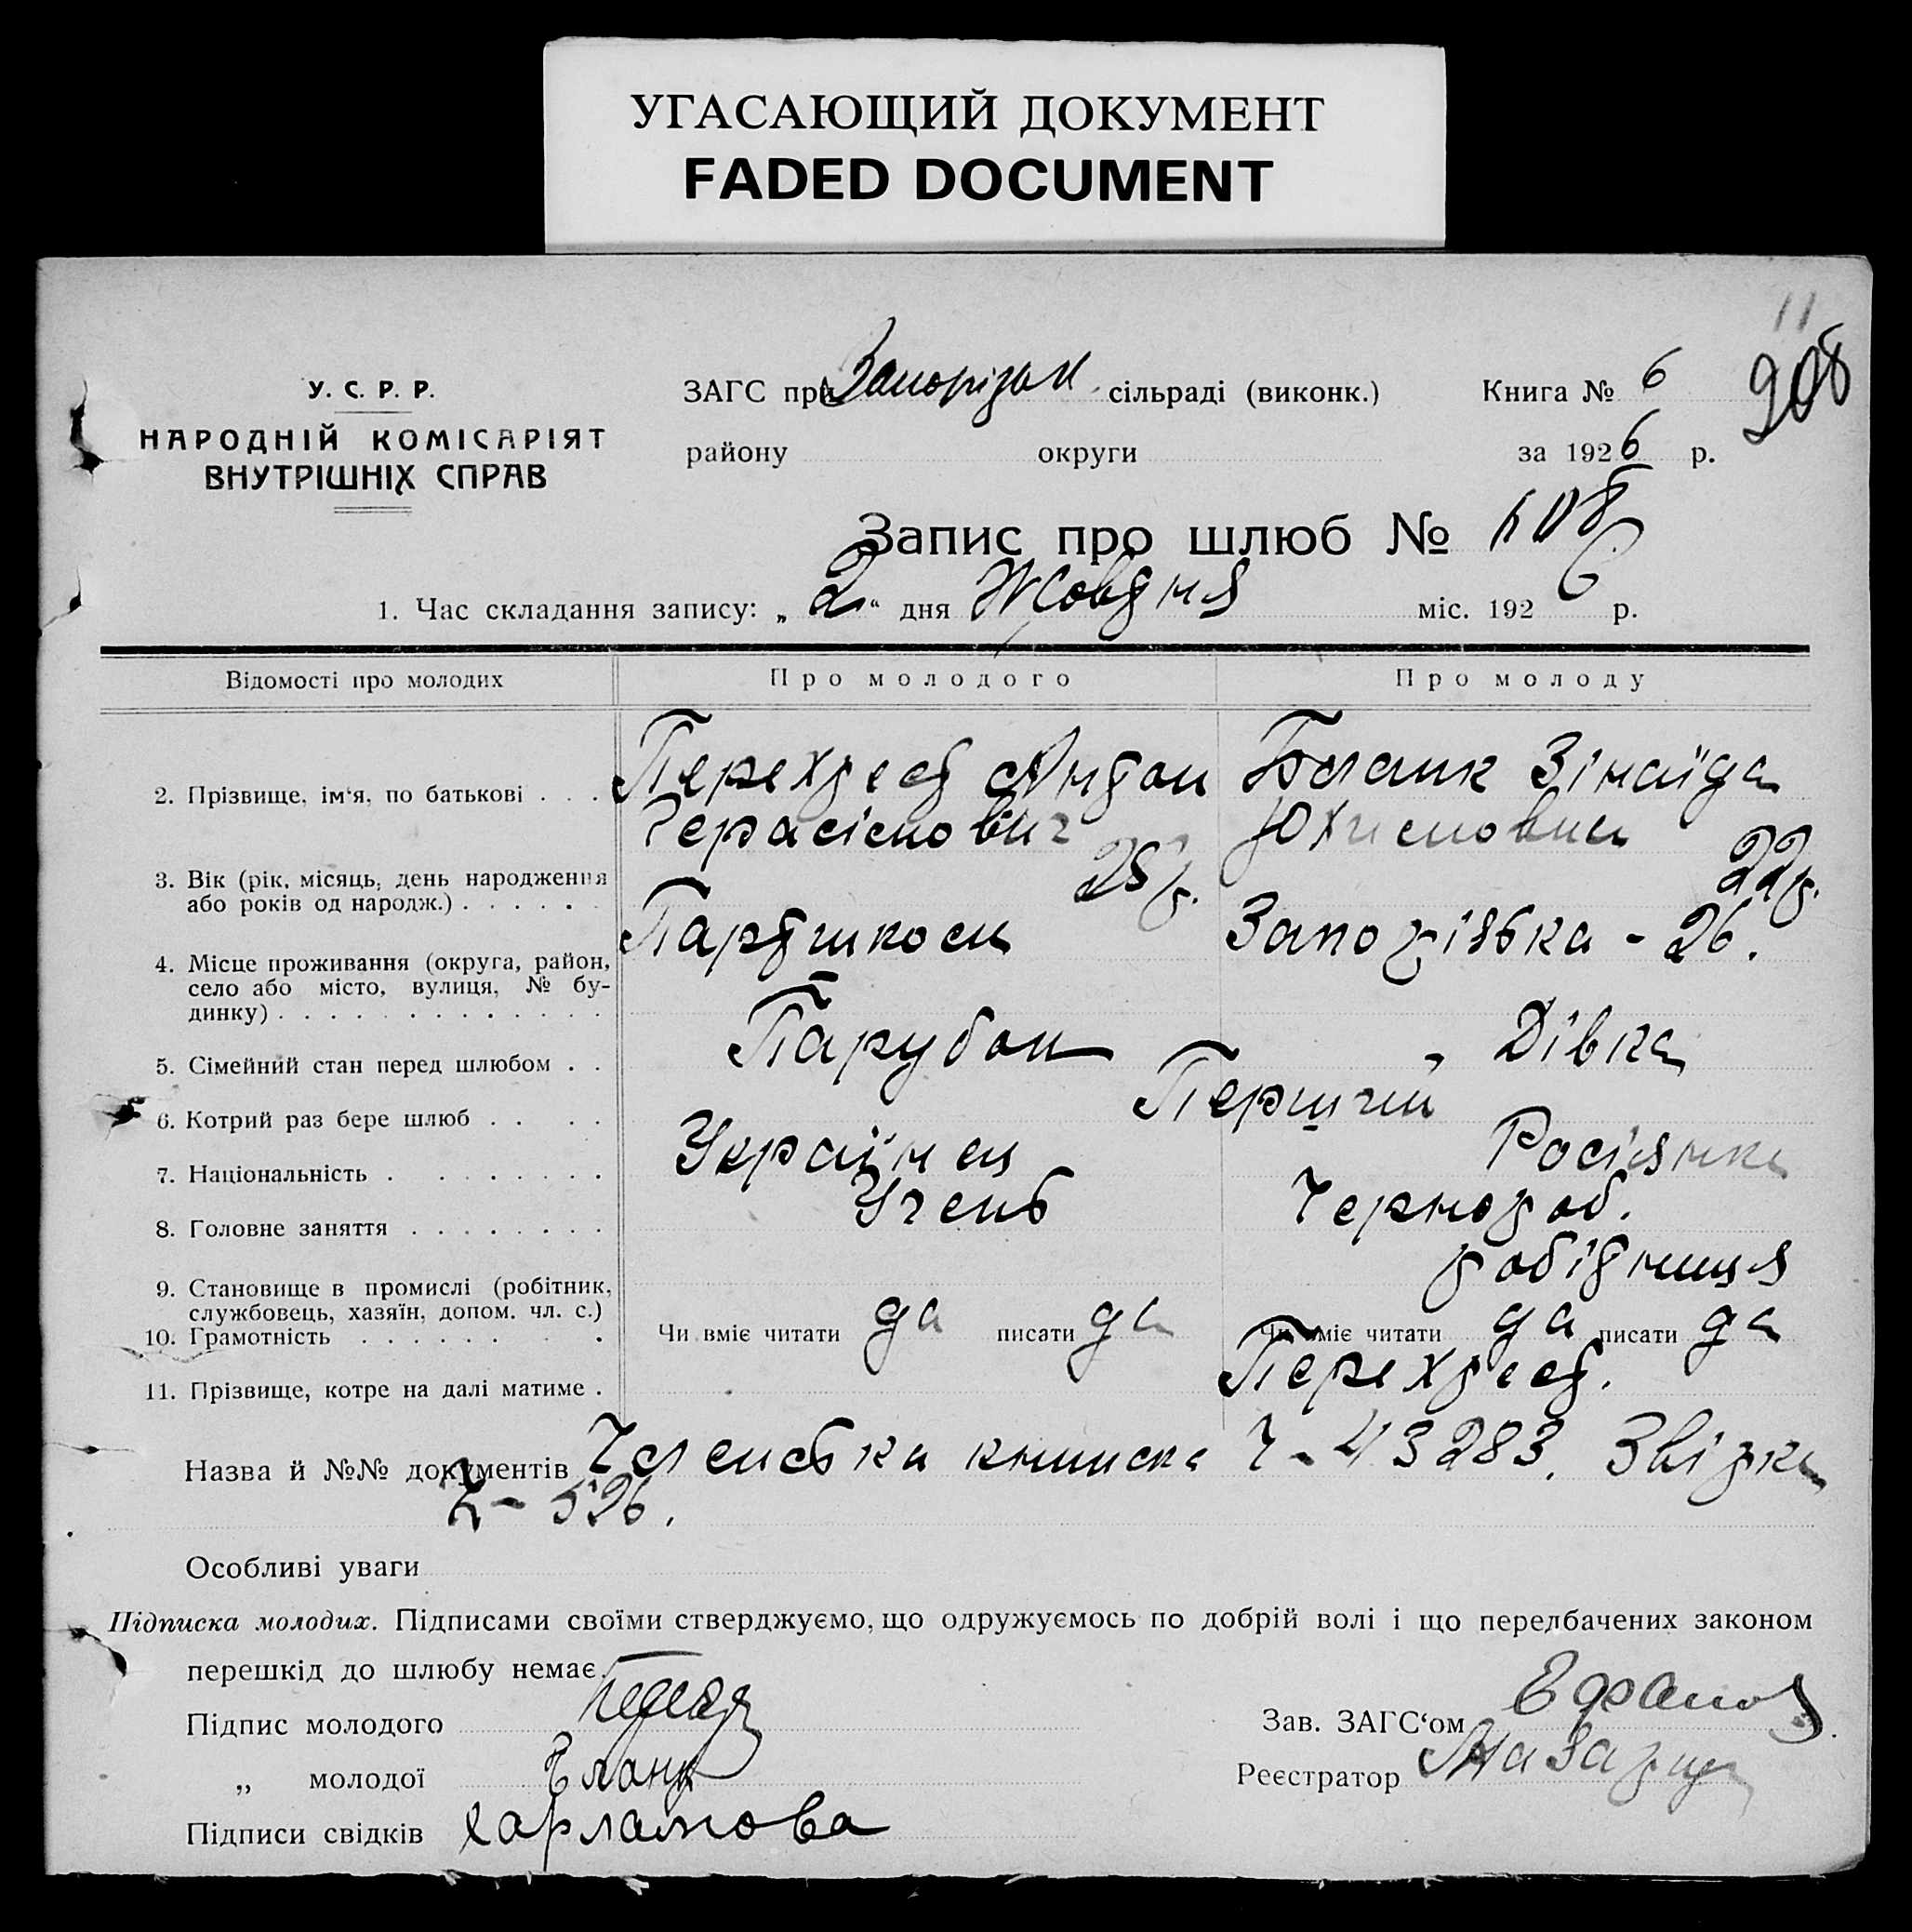 УГАСАЮЩИЙ ДОКУМЕНТ
FADED DOCUMENT
11
208
У. С. Р. Р.
НАРОДНІЙ КОМІСАРІЯТ
ВНУТРІШНІХ СПРАВ
ЗАГС при Запорізьк сільраді (виконк.) Книга № 6
району округи за 1926 р.
Запис про шлюб № 1108
1. Час складання запису: „2“ дня Жовдня міс. 1926 р.
Відомості про молодих Про молодого Про молоду
2. Прізвище, ім‘я, по батькові . . . Перехрест Антон Бланк Зінаїда
Герасімович Юхимовна
3. Вік (рік, місяць, день народження 25 р. 22 р.
або років од народж.) . . . . . .
4. Місце проживання (округа, район, Запорізька - 26.
село або місто, вулиця, № бу-
динку) . . . . . . . . . . . . . .
5. Сімейний стан перед шлюбом . . Парубок Дівка
6. Котрий раз бере шлюб . . . . Перший
7. Національність . . . . . . . . Українец Росіянка
8. Головне заняття . . . . . . . . Учень Чернороб.
9. Становище в промислі (робітник, робітниця
службовець, хазяїн, допом. чл. с.)
10. Грамотність . . . . . . . . Чи вміє читати да писати да Чи вміє читати да писати да
11. Прізвище, котре на далі матиме . Перехрест.
Назва й №№ документів Членська книжка Ч - 43283. Звірка
Ч - 526.
Особливі уваги
Підписка молодих. Підписами своїми стверджуємо, що одружуємось по добрій волі і що передбачених законом
перешкід до шлюбу немає.
Підпис молодого Зав. ЗАГС‘ом
„ молодої Бланк Реєстратор
Підписи свідків Харламова